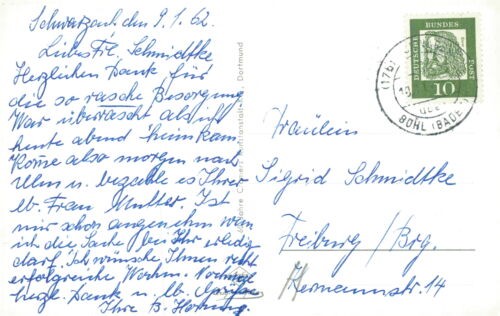 Schwarzach den 9.1.62.
Liebes Frl. Schmidtke
Herzlichen Dank für
die so rasche Besorgung
War überrascht als ich
heute abend heimkam.
Komme also morgen nach
Ulm u. bezahle es Ihrer
lb. Frau Mutter. Ist
mir schon angenehm wenn
ich die Sache bei Ihr erledig
darf. Ich wünsche Ihnen recht
erfolgreiche Nochmals
herzl. Dank u. lb. Grüsse
Ihre B. Hornung
Dortmund
DEUTSCHE BUNDESPOST
10
(17b)
BÜHL (BADEN)
Fräulein
Sigrid Schmidtke
Freiburg / Brg.
Hermannstr. 14